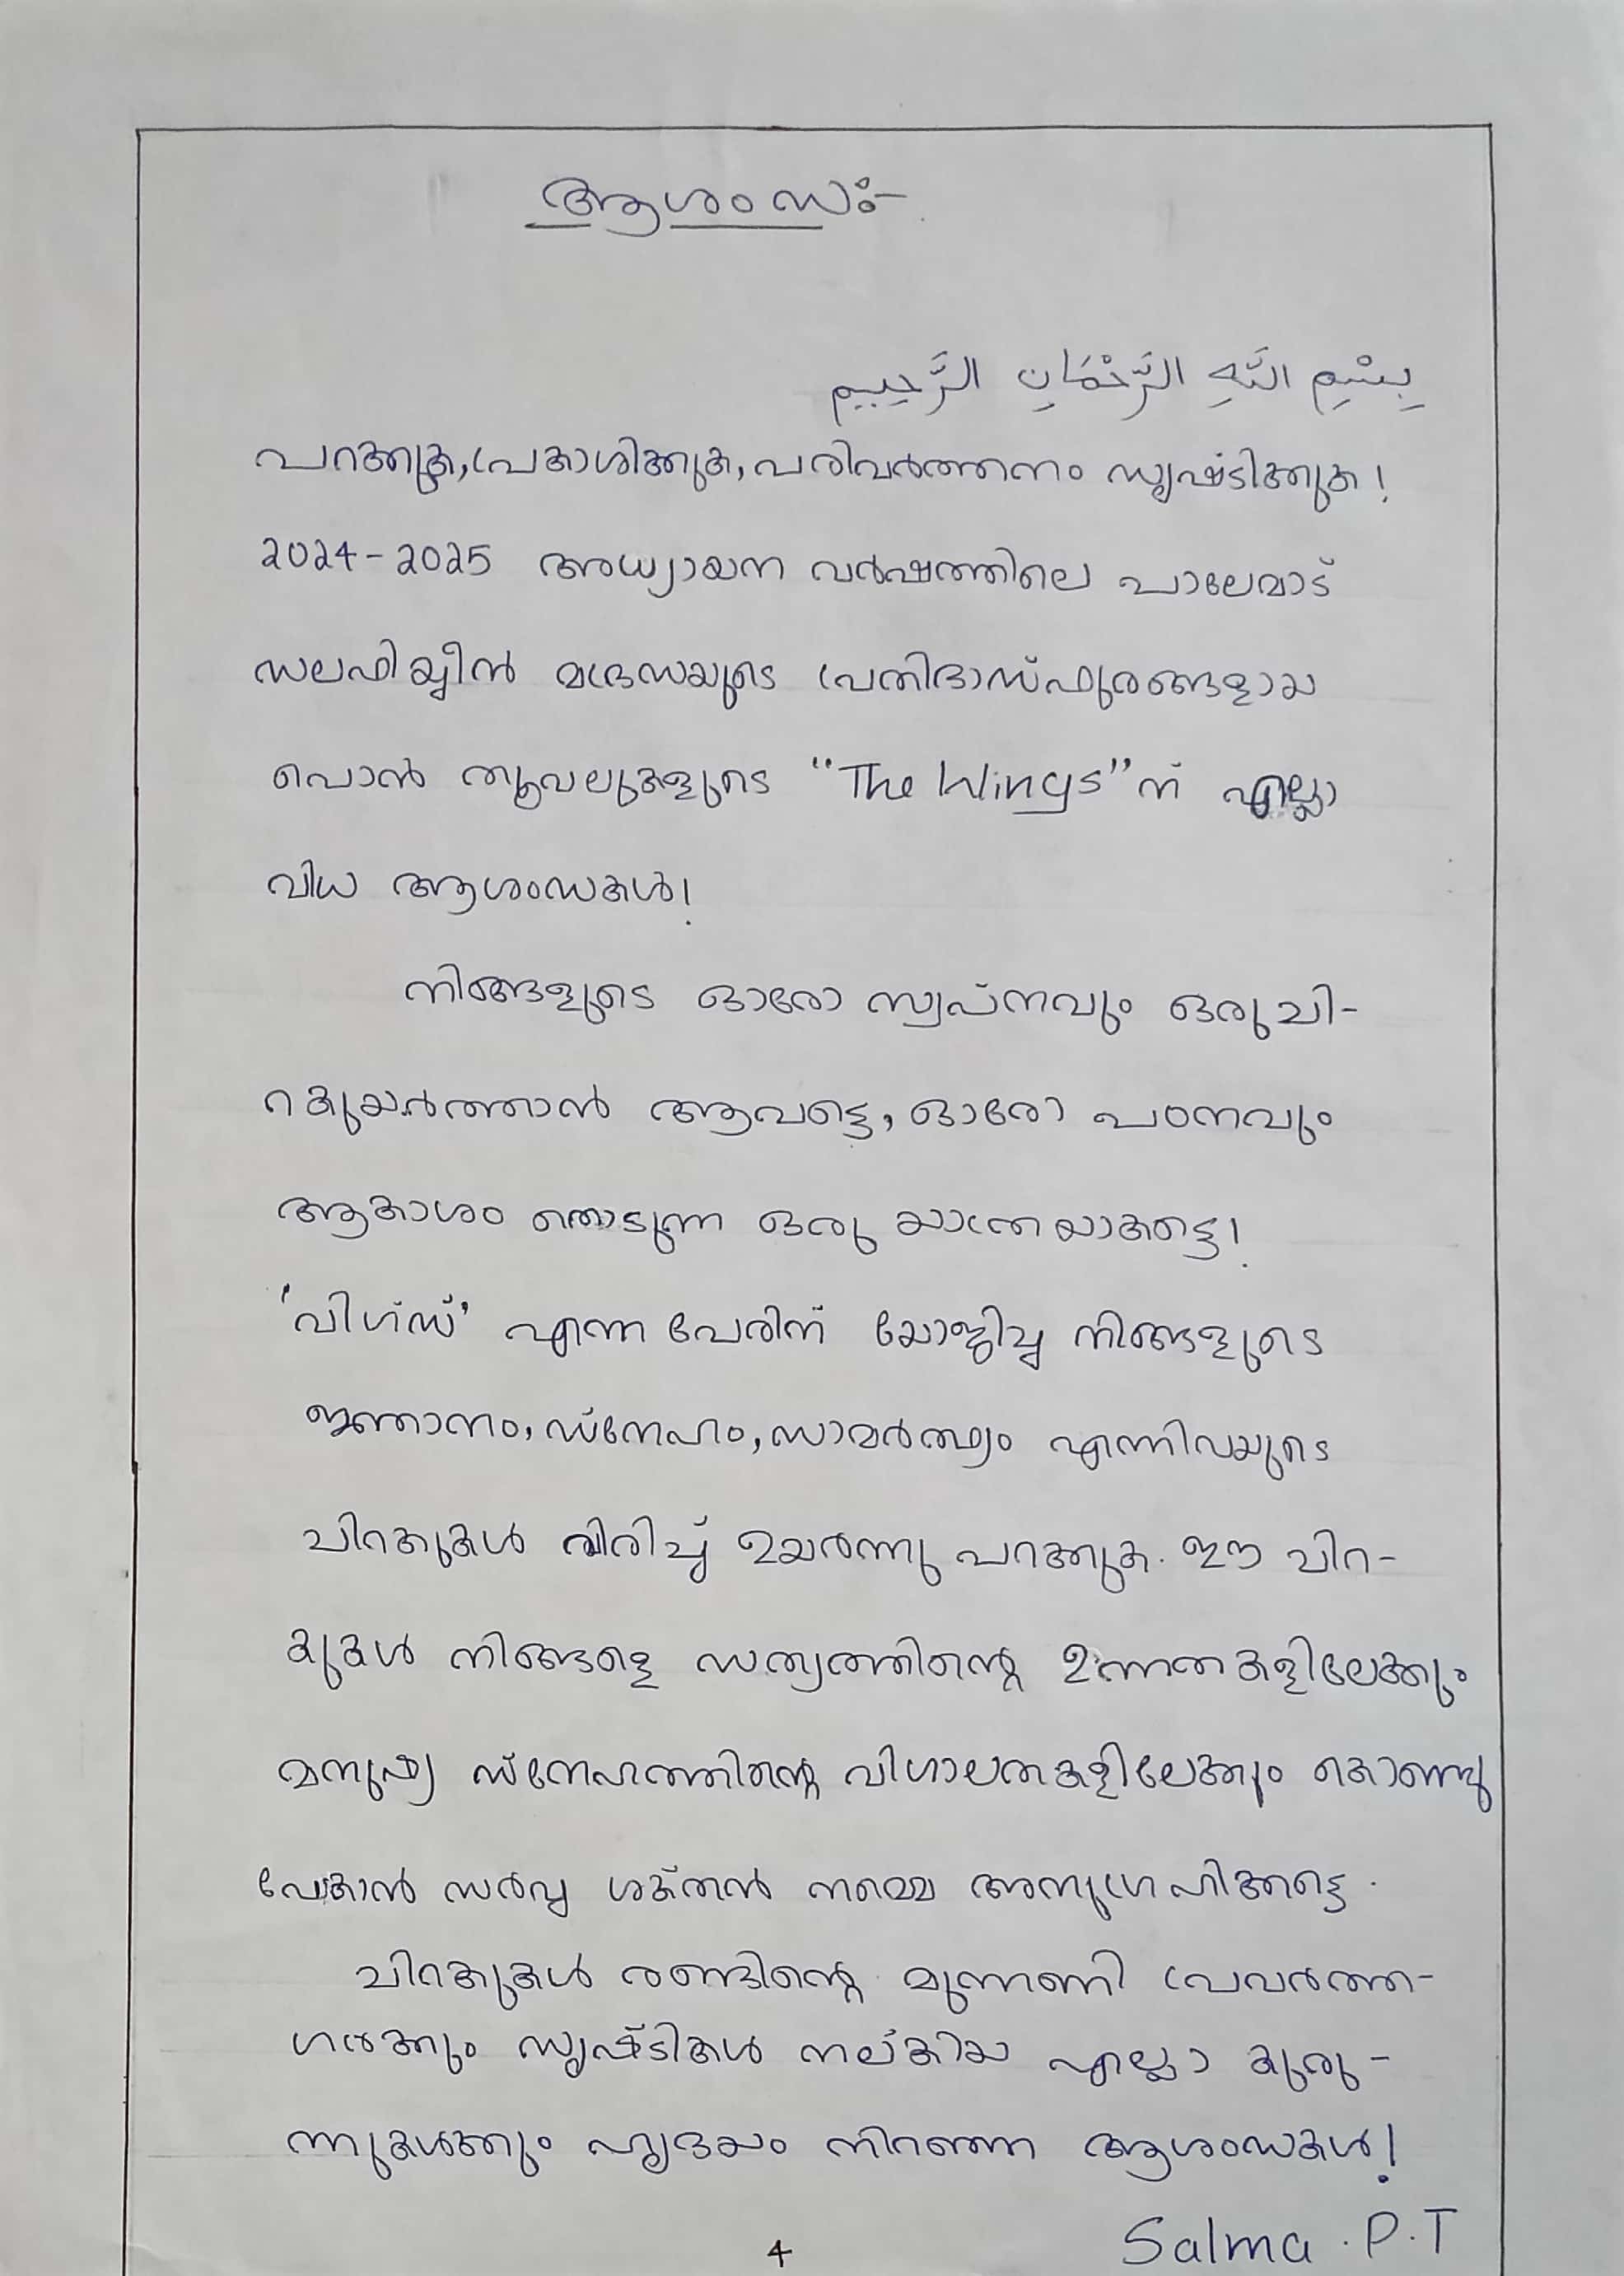 ആശംസഃ-
بِسْمِ اللَّهِ الرَّحْمَانِ الرَّحِيمِ
പറക്കുക, പ്രകാശിക്കുക, പരിവർത്തനം സൃഷ്ടിക്കുക!
2024-2025 അധ്യായന വർഷത്തിലെ പാലേമാട്
സലഫിയ്യീൻ മദ്രസയുടെ പ്രതിഭാസ്ഫുരങ്ങളായ
പൊൻ തൂവലുകളുടെ "The Wings" ന് എല്ലാ
വിധ ആശംസകൾ!
നിങ്ങളുടെ ഓരോ സ്വപ്നവും ഒരു ചി-
റകുയർത്താൻ ആവട്ടെ, ഓരോ പഠനവും
ആകാശം തൊടുന്ന ഒരു യാത്രയാകട്ടെ!
'വിഗ്സ്' എന്ന പേരിന് യോജിച്ച നിങ്ങളുടെ
ജ്ഞാനം, സ്നേഹം, സാമർത്ഥ്യം എന്നിവയുടെ
ചിറകുകൾ വിരിച്ച് ഉയർന്നു പറക്കുക. ഈ ചിറ-
കുകൾ നിങ്ങളെ സത്യത്തിന്റെ ഉന്നതകളിലേക്കും
മനുഷ്യ സ്നേഹത്തിന്റെ വിശാലതകളിലേക്കും കൊണ്ടു
പോകാൻ സർവ്വ ശക്തൻ നമ്മെ അനുഗ്രഹിക്കട്ടെ.
ചിറകുകൾ രണ്ടിന്റെ മുന്നണി പ്രവർത്ത-
ഗർക്കും സൃഷ്ടികൾ നല്കിയ എല്ലാ കുരു-
ന്നുകൾക്കും ഹൃദയം നിറഞ്ഞ ആശംസകൾ!
Salma . P . T
4